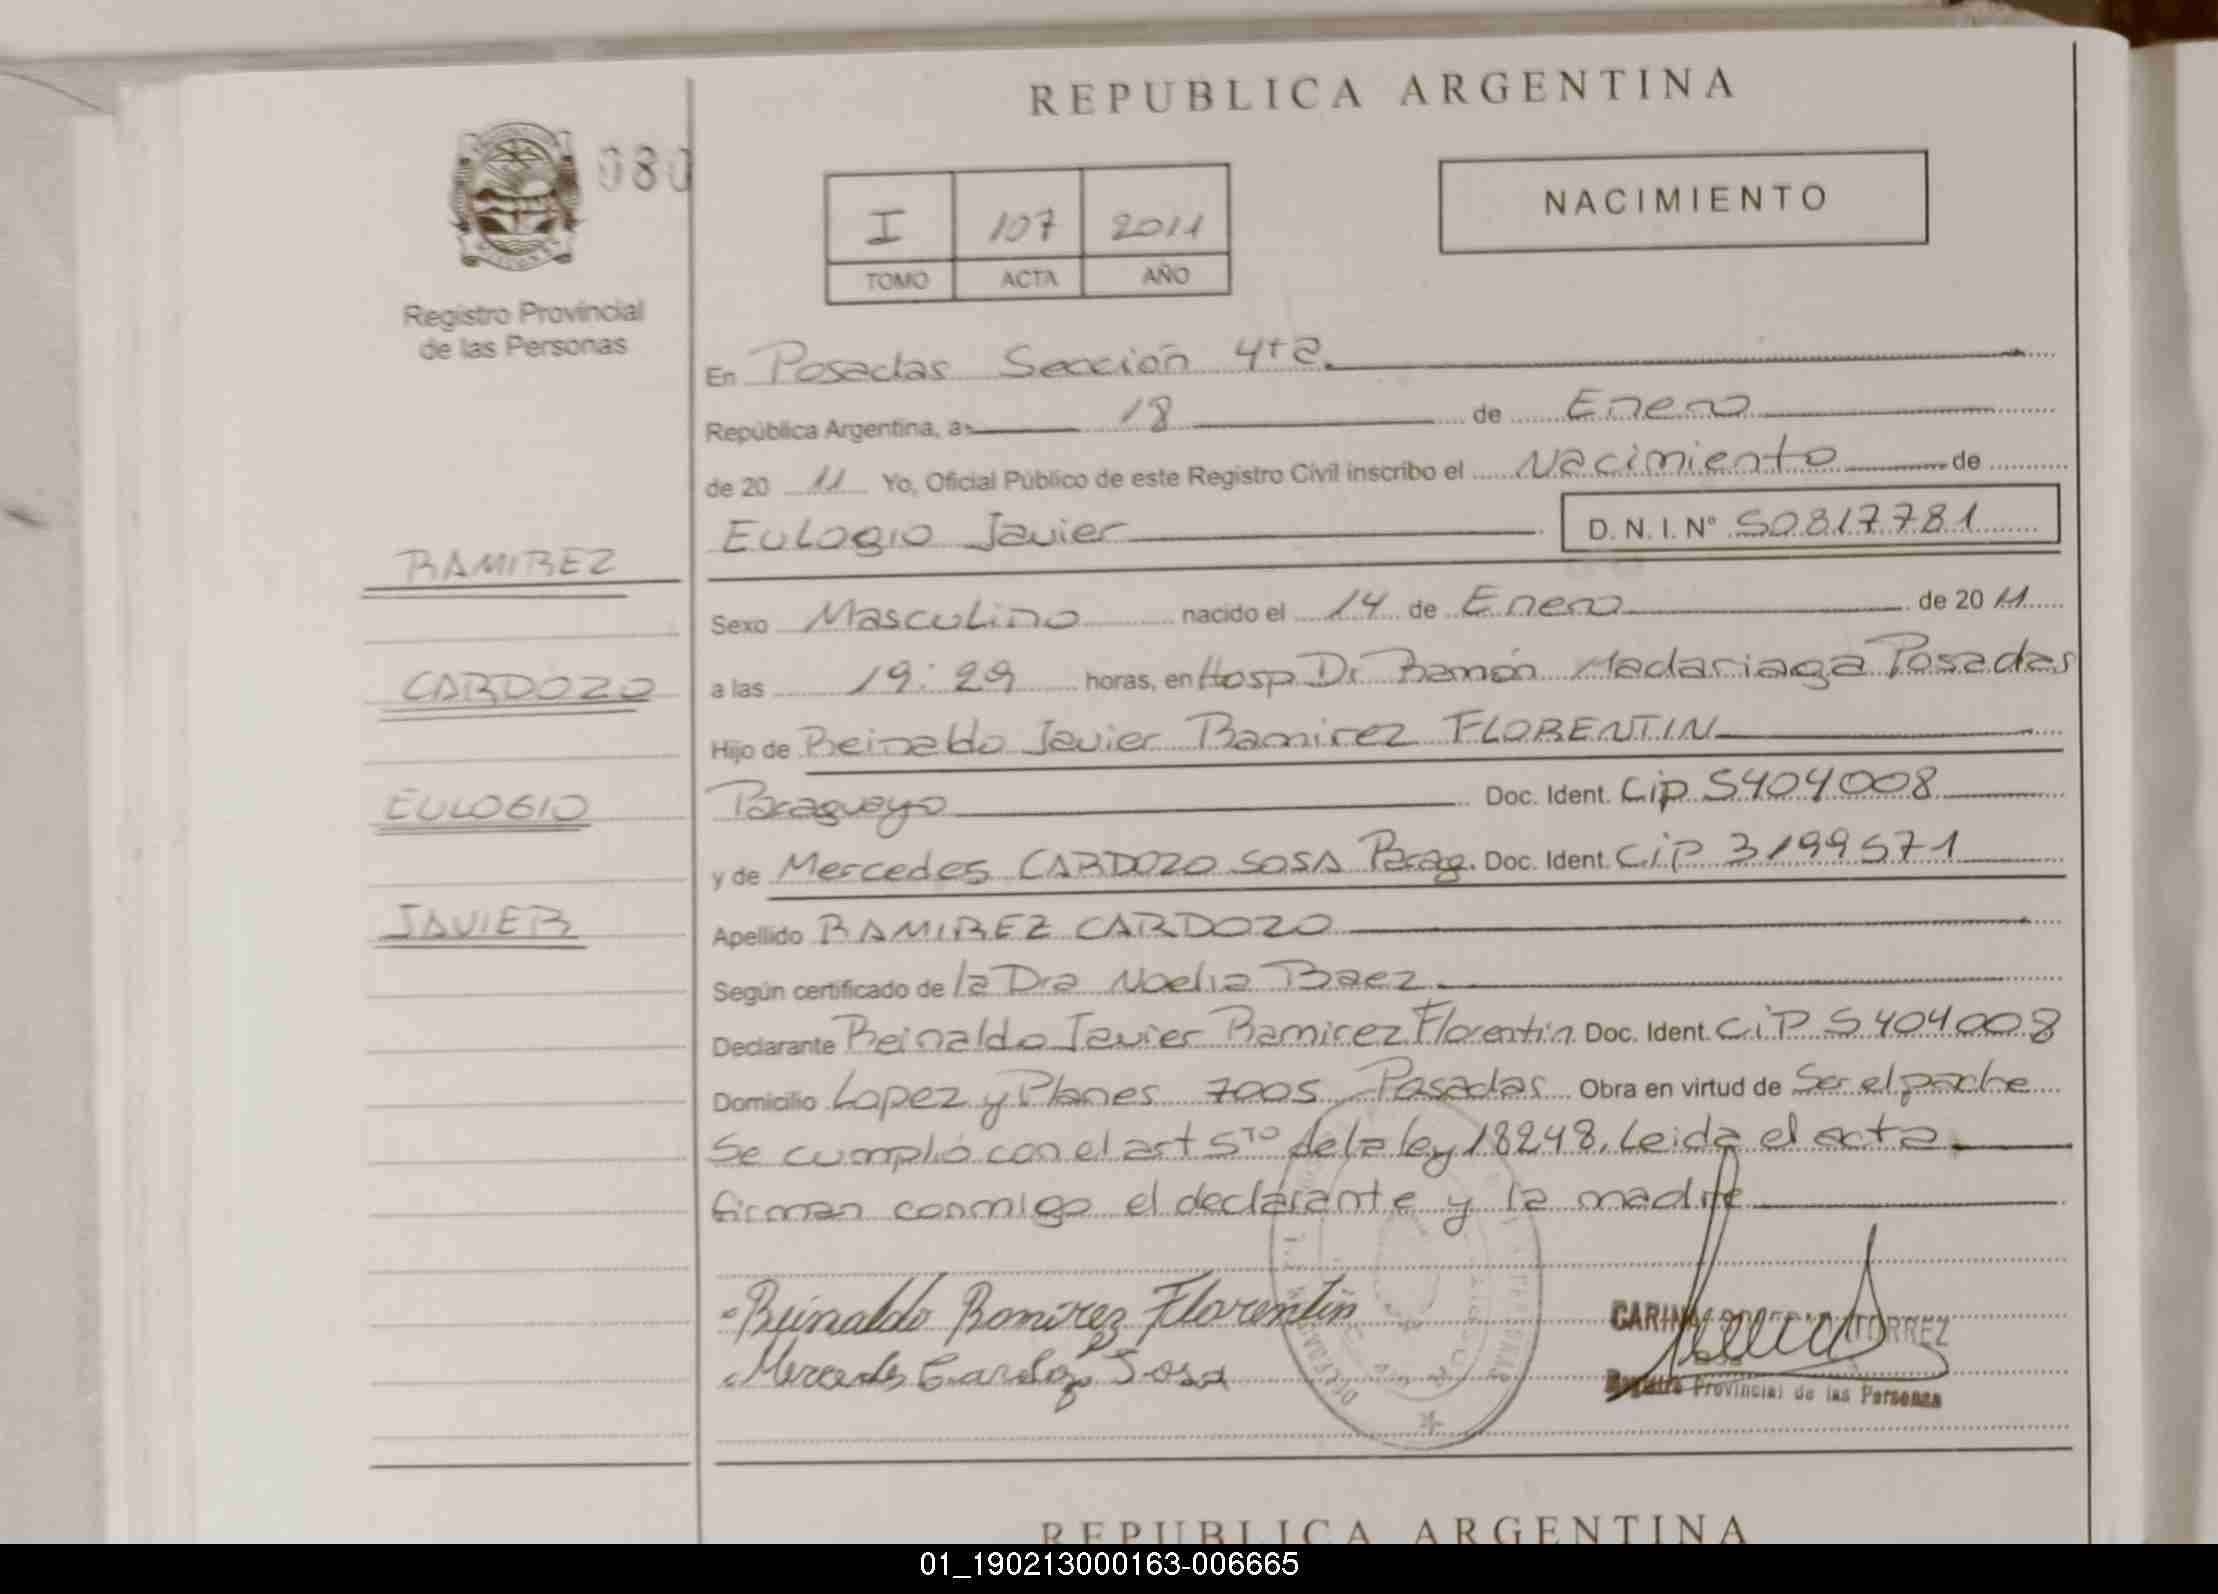 REPUBLICA ARGENTINA
080
I 107 2011
TOMO ACTA AÑO
NACIMIENTO
Registro Provincial
de las Personas
En Posadas Sección 4ta
República Argentina, a 18 de Enero
de 20 11 Yo, Oficial Público de este Registro Civil inscribo el Nacimiento de
EULOGIO Javier D. N. I. Nº 50817781
RAMIREZ
CARDOZO
EULOGIO
JAVIER
Sexo Masculino nacido el 14 de Enero de 20 11
a las 19:29 horas, en Hosp Dr Ramón Madariaga Posadas
Hijo de Reinaldo Javier Ramirez FLORENTIN
Paraguayo Doc. Ident. Cip 5404008
y de Mercedes CARDOZO SOSA Parag. Doc. Ident. CiP 3199571
Apellido RAMIREZ CARDOZO
Según certificado de la Dra Noelia Baez
Declarante Reinaldo Javier Ramirez Florentin Doc. Ident. CiP 5404008
Domicilio Lopez y Planes 7005 Posadas Obra en virtud de Ser el padre
Se cumplió con el art 5to de la ley 18248. Leida el acta
firman conmigo el declarante y la madre
Reinaldo Ramirez Florentin
Mercedes Cardozo Sosa
CARINA TORREZ
Registro Provincial de las Personas
REPUBLICA ARGENTINA
01_190213000163-006665